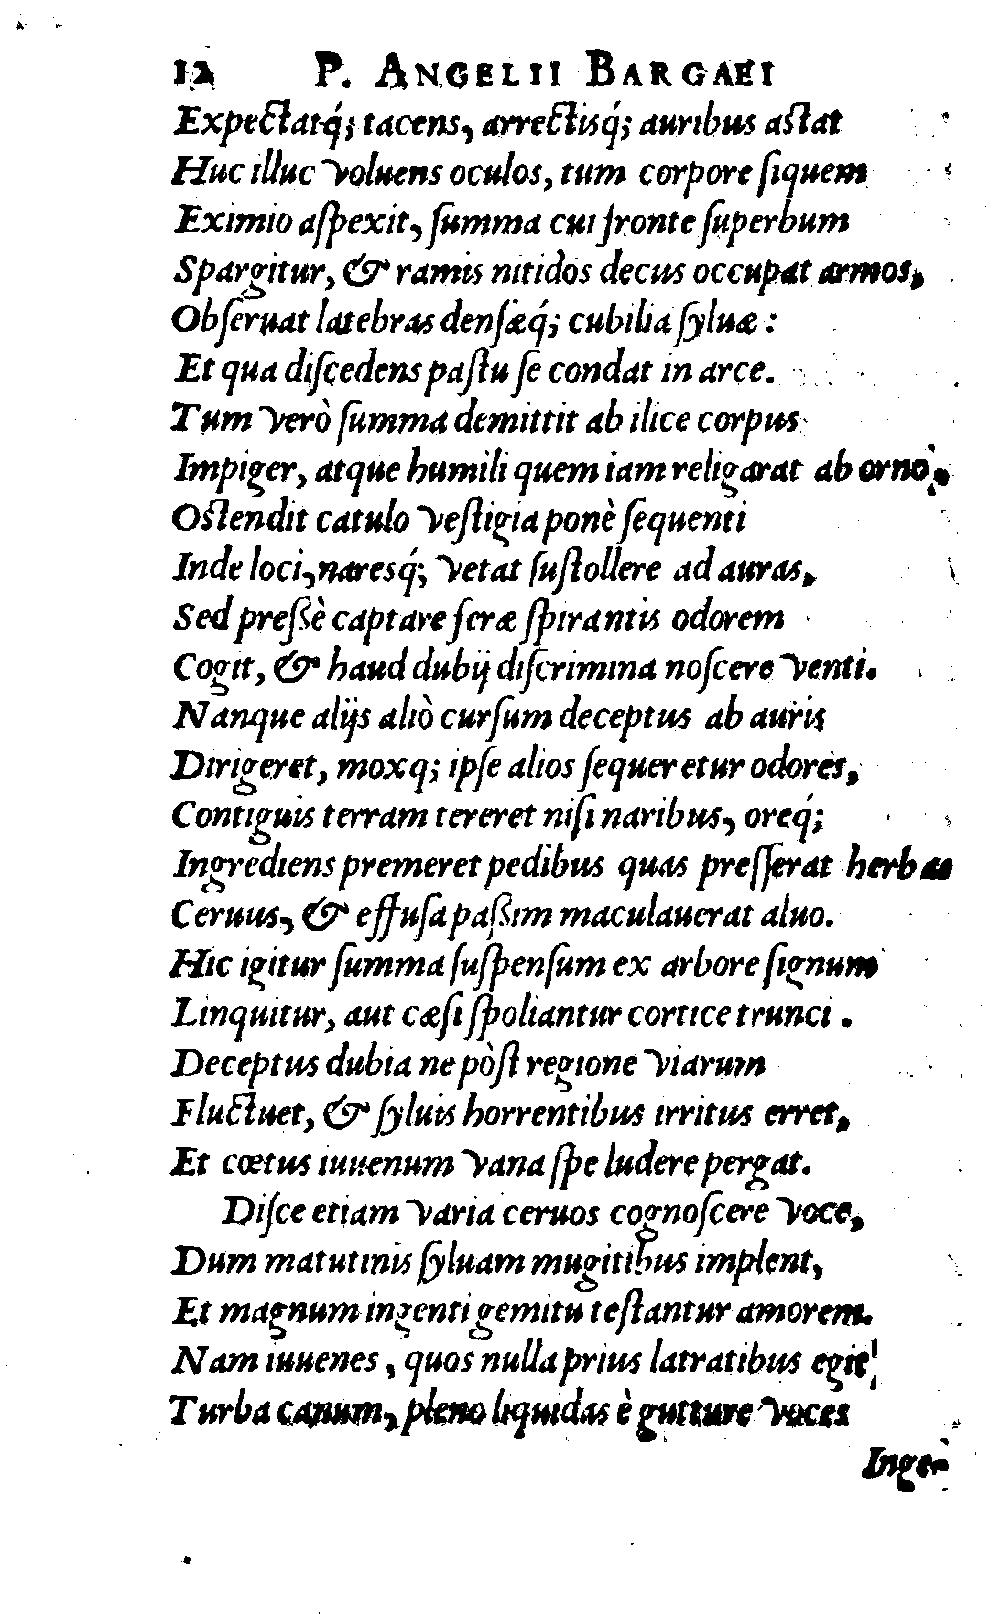 12 P. ANGELII BARGAEI
Expectatq́; tacens, arrectisq́; auribus astat
Huc illuc voluens oculos, tum corpore ſiquem
Eximio aſpexit, ſumma cui fronte ſuperbum
Spargitur, & ramis nitidos decus occupat armos,
Obſeruat latebras denſæq́; cubilia ſyluæ:
Et qua diſcedens paſtu ſe condat in arce.
Tum verò ſumma demittit ab ilice corpus
Impiger, atque humili quem iam religarat ab orno,
Oſtendit catulo veſtigia ponè ſequenti
Inde loci, naresq́; vetat ſuſtollere ad auras,
Sed preſsè captare feræ ſpirantis odorem
Cogit, & haud dubij diſcrimina noſcere venti.
Nanque alijs aliò curſum deceptus ab auris
Dirigeret, moxq; ipſe alios ſequeretur odores,
Contiguis terram tereret niſi naribus, oreq́;
Ingrediens premeret pedibus quas preſſerat herbas
Ceruus, & effuſa paſsim maculauerat aluo.
Hic igitur ſumma ſuſpenſum ex arbore ſignum
Linquitur, aut cæſi ſpoliantur cortice trunci.
Deceptus dubia ne pòſt regione viarum
Fluctuet, & ſyluis horrentibus irritus erret,
Et cœtus iuuenum vana ſpe ludere pergat.
Diſce etiam varia ceruos cognoſcere voce,
Dum matutinis ſyluam mugitibus implent,
Et magnum ingenti gemitu teſtantur amorem.
Nam iuuenes, quos nulla prius latratibus egit
Turba canum, pleno liquidas è gutture voces
Inge-